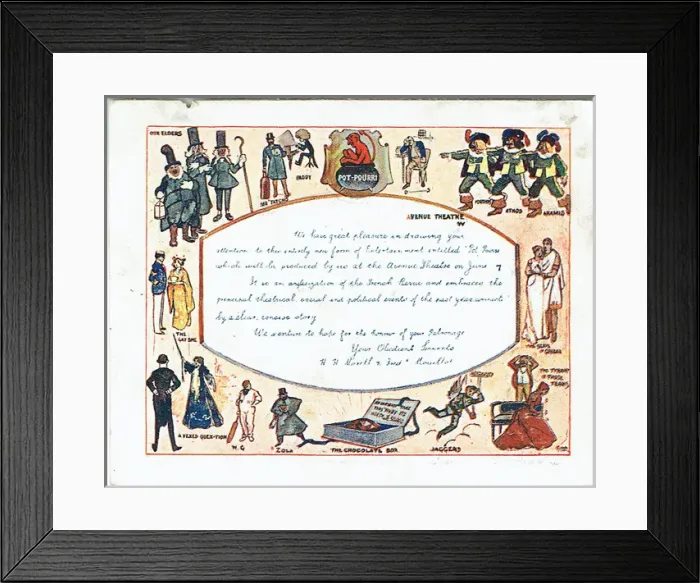 OUR ELDERS
PADDY
POT-POURRI
PORTHOS
ATHOS
ARAMIS
AVENUE THEATRE
W
We have great pleasure in drawing your
attention to this entirely new form of Entertainment entitled "Pot Pourri
which will be produced by us at the Avenue Theatre on June 7
It is an of the French Revue and embraces the
principal theatrical, social and political events of the past year
by a clear, concise story
We venture to hope for the honour of your Patronage
Your Obedient Servants
THE
A VEXED QUEX-TION
W.G
ZOLA
THE CHOCOLATE BOX
JAGGERS
THE TYRANNY
TEARS